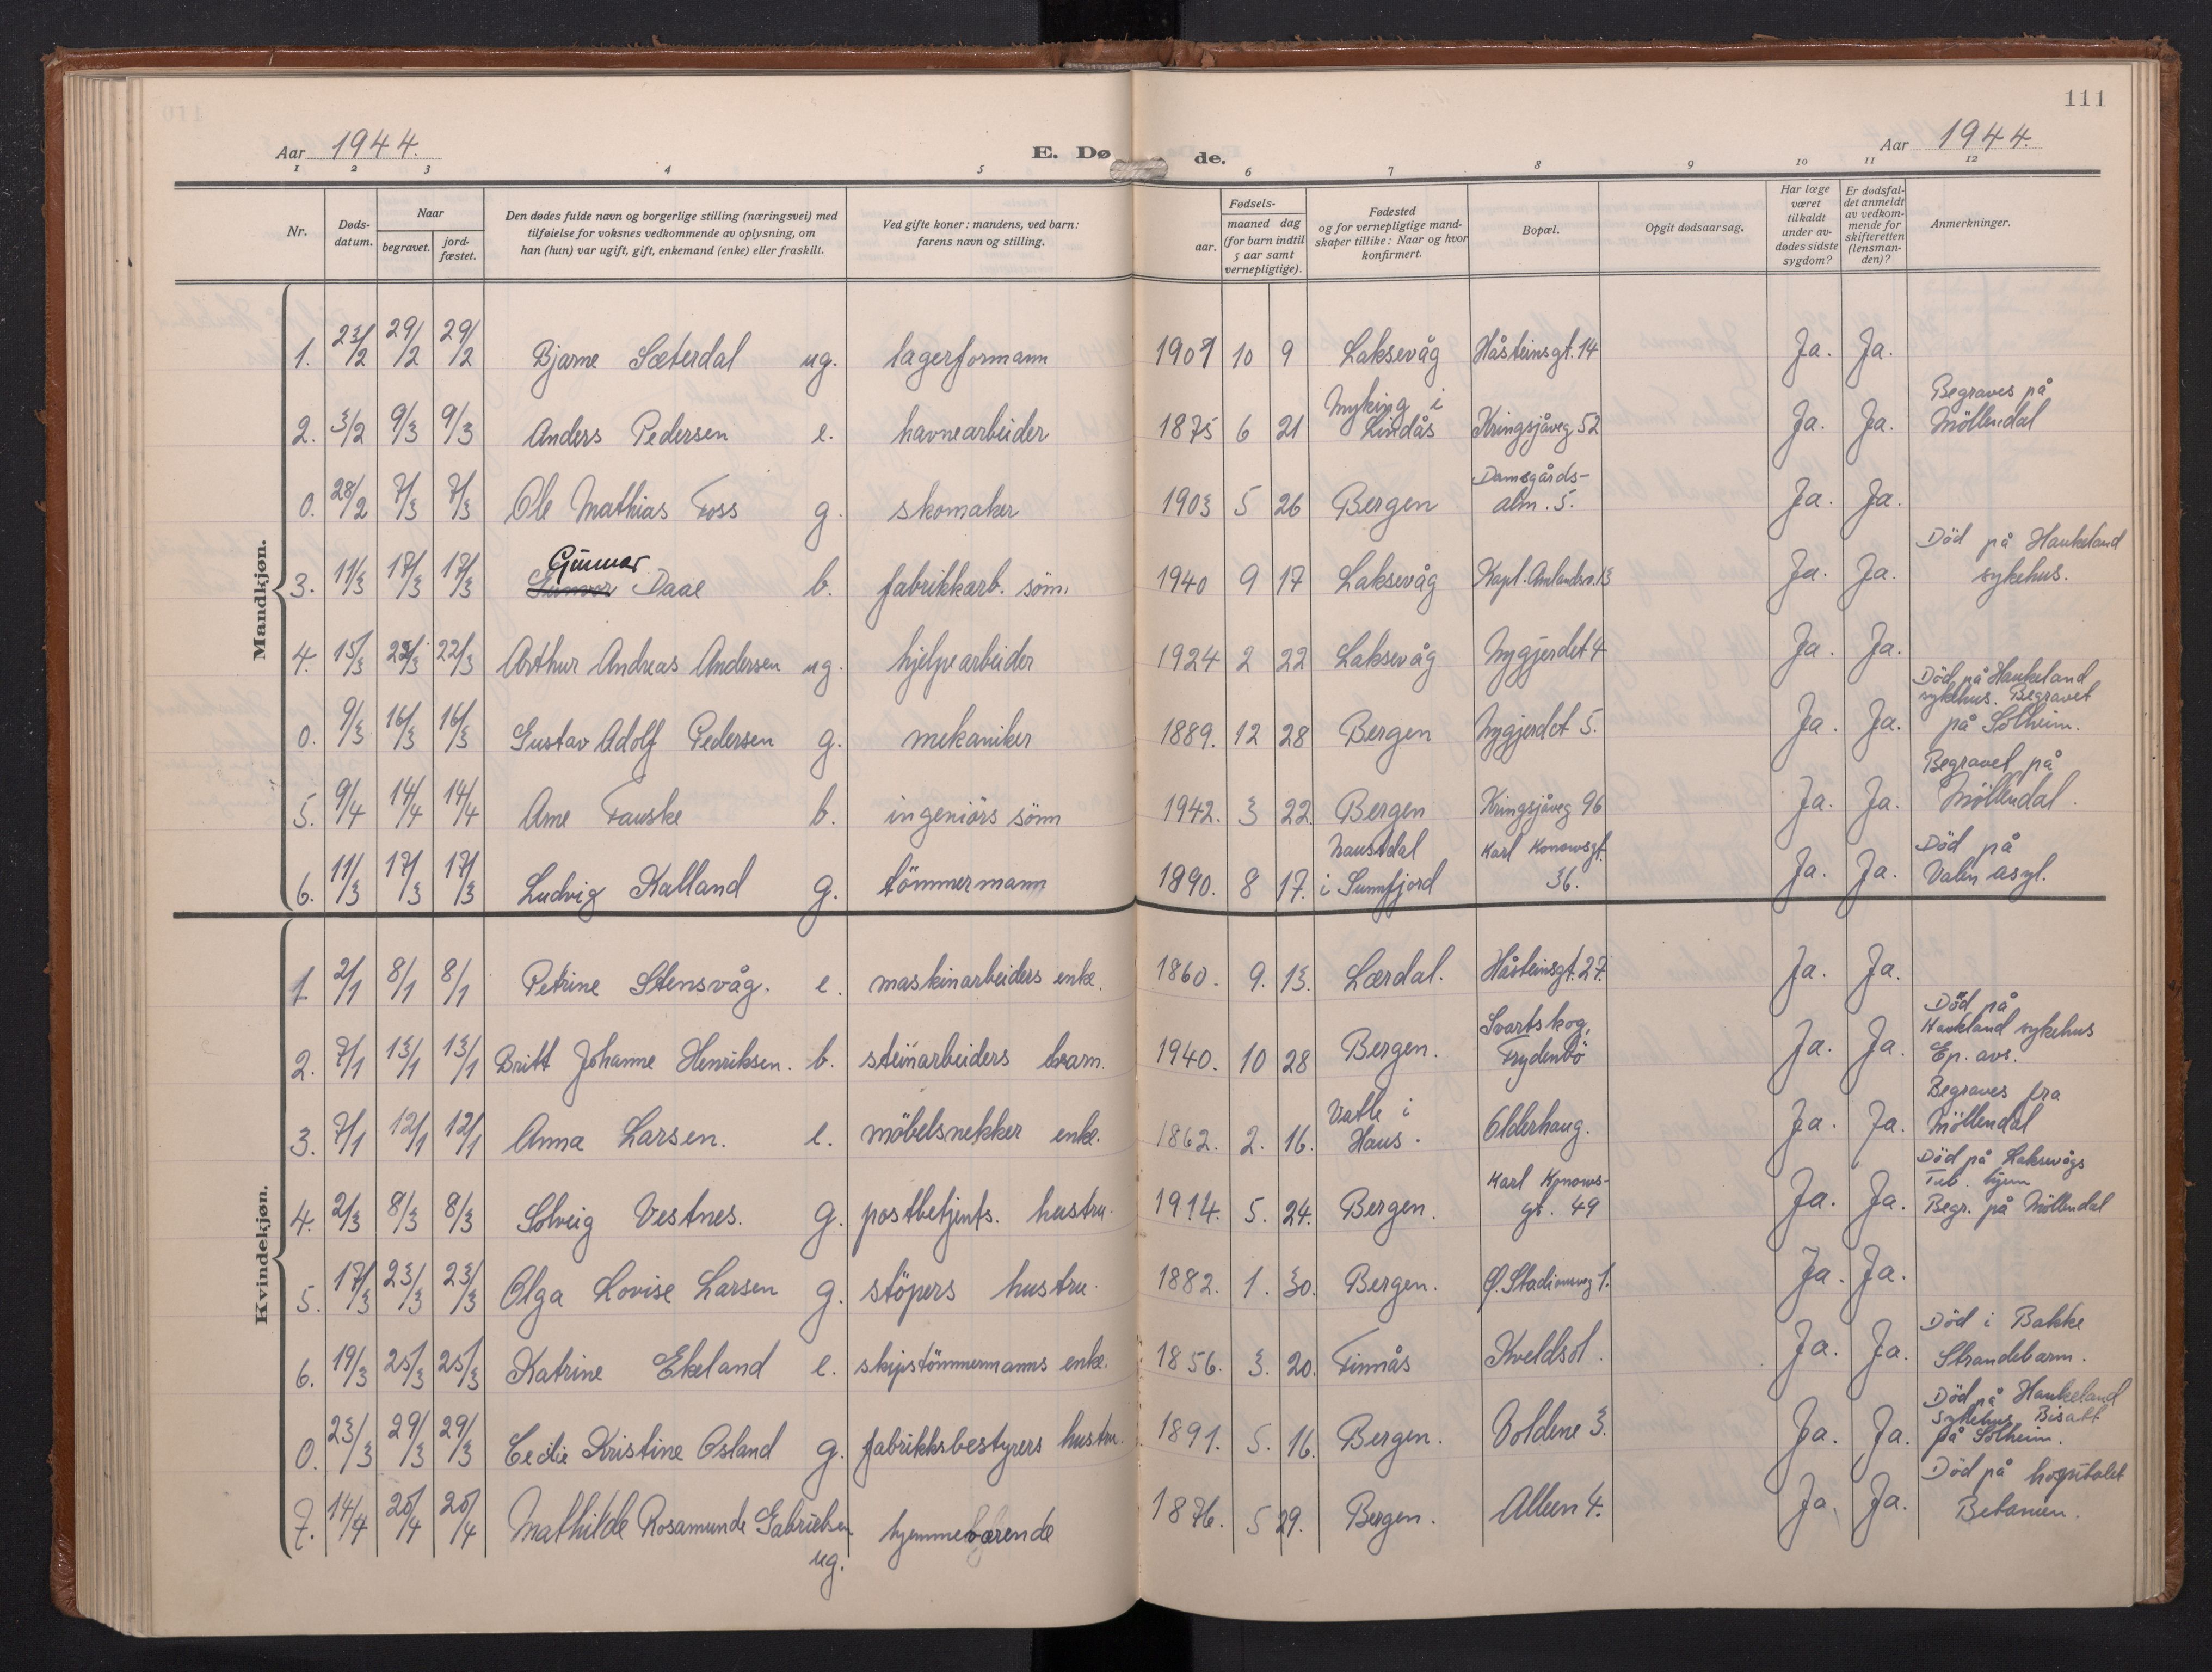 111
Aar 1944. E. Døde. Aar 1944.
1 2 3 4 5 6 7 8 9 10 11 12
Nr. Dødsdatum. Naar begravet. jordfæstet. Den dødes fulde navn og borgerlige stilling (næringsvei) med tilføielse for voksnes vedkommende av oplysning, om han (hun) var ugift, gift, enkemand (enke) eller fraskilt. Ved gifte koner: mandens, ved barn: farens navn og stilling. Fødsels- aar. maaned dag (for barn indtil 5 aar samt vernepligtige). Fødested og for vernepligtige mandskaper tillike: Naar og hvor konfirmert. Bopæl. Opgit dødsaarsag. Har læge været tilkaldt under avdødes sidste sygdom? Er dødsfaldet anmeldt av vedkommende for skifteretten (lensmanden)? Anmerkninger.
Mandkjøn.
1. 23/2 29/2 29/2 Bjarne Sæterdal ug. lagerformann 1907 10 9 Laksevåg Håsteinsgt. 14 Ja. Ja.
2. 3/2 9/3 9/3 Anders Pedersen e. havnearbeider 1875 6 21 Myking i Lindås Kringsjåveg 52 Ja. Ja. Begraves på Möllendal
0. 28/2 7/3 7/3 Ole Mathias Foss g. skomaker 1903 5 26 Bergen Damsgårds-alm. 5. Ja. Ja.
3. 11/3 17/3 17/3 Gunnar Daae b. fabrikkarb. sönn 1940 9 17 Laksevåg Kapl. Amlandsv. 13 Ja. Ja. Död på Haukeland sykehus.
4. 15/3 22/3 22/3 Arthur Andreas Andersen ug. hjelpearbeider 1924 2 22 Laksevåg Nygjerdet 4 Ja. Ja.
0. 9/3 16/3 16/3 Gustav Adolf Pedersen g. mekaniker 1889. 12 28 Bergen Nygjerdet 5. Ja. Ja. Död på Haukeland sykehus. Begravet på Solheim.
5. 9/4 14/4 14/4 Arne Fauske b. ingeniörs sönn 1942. 3 22. Bergen Kringsjåveg 96 Ja. Ja. Begravet på Möllendal.
6. 11/3 17/3 17/3 Ludvig Kalland g. tömmermann 1890. 8 17. Naustdal i Sunnfjord Karl Konowsgt. 36. Ja. Ja. Död på Valen asyl.
Kvindekjøn.
1. 2/1 8/1 8/1 Petrine Stensvåg. e. maskinarbeiders enke. 1860. 9. 13. Lærdal. Håsteinsgt. 27. Ja. Ja.
2. 7/1 13/1 13/1 Britt Johanne Henriksen. b. steinarbeiders barn. 1940. 10 28 Bergen. Svartskog, Frydenbö Ja. Ja. Död på Haukland sykehus Ep. avs.
3. 7/1 12/1 12/1 Anna Larsen. e. möbelsnekker enke. 1862. 2. 16. Vatle i Haus. Olderhaug. Ja. Ja. Begraves fra Möllendal
4. 2/3 8/3 8/3 Solveig Vestnes. g. postbetjents. hustru. 1914. 5. 24. Bergen. Karl Konows-gt. 49 Ja. Ja. Död på Laksevågs Tub. hjem Begr. på Möllendal
5. 17/3 23/3 23/3 Olga Lovise Larsen g. stöpers hustru. 1882. 1. 30. Bergen. Ø. Stadionsveg 1. Ja. Ja.
6. 19/3 25/3 25/3 Katrine Ekeland e. skipstömmermanns enke. 1856. 3. 20. Finnås Kveldsol. Ja. Ja. Död i Bakke Strandebarm.
0. 23/3 29/3 29/3 Cecilie Kristine Osland g. fabrikksbestyrers hustru. 1891. 5. 16. Bergen. Voldene 3. Ja. Ja. Död på Haukeland sykehus Bisatt på Solheim.
7. 14/4 20/4 20/4 Mathilde Rosamunde Gabrielsen ug. hjemmeværende 1876. 5 29. Bergen. Alleen 4. Ja. Ja. Död på hospitalet Betanien.